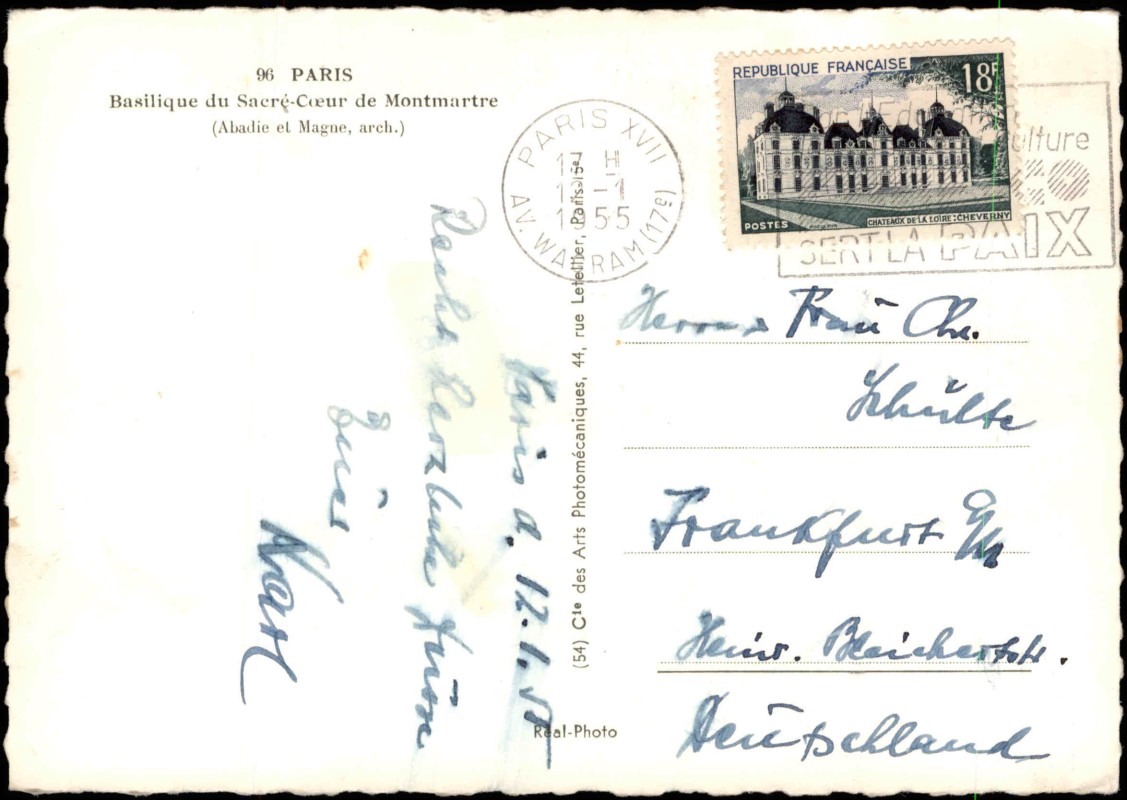 96 PARIS
Basilique du Sacré-Cœur de Montmartre
(Abadie et Magne, arch.)
PARIS XVII
AV. WAGRAM (17e)
1955
REPUBLIQUE FRANÇAISE
18F
CHATEAUX DE LA LOIRE : CHEVERNY
POSTES
culture
SERT LA PAIX
Paris d. 12.1.55
Recht herzliche Grüsse
Euer
Karl
(54) Cie des Arts Photomécaniques, 44, rue Letellier, Paris-15e
Real-Photo
Frau Chr.
Schülte
Frankfurt
Heinr. Bleichertstr.
Deutschland